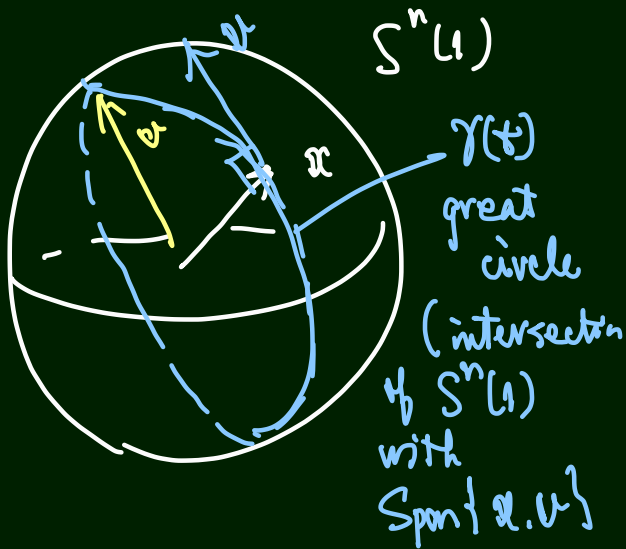 S^n(1)
v
v
x
γ(t)
great
circle
(intersection
of S^n(1)
with
Span{x.v}